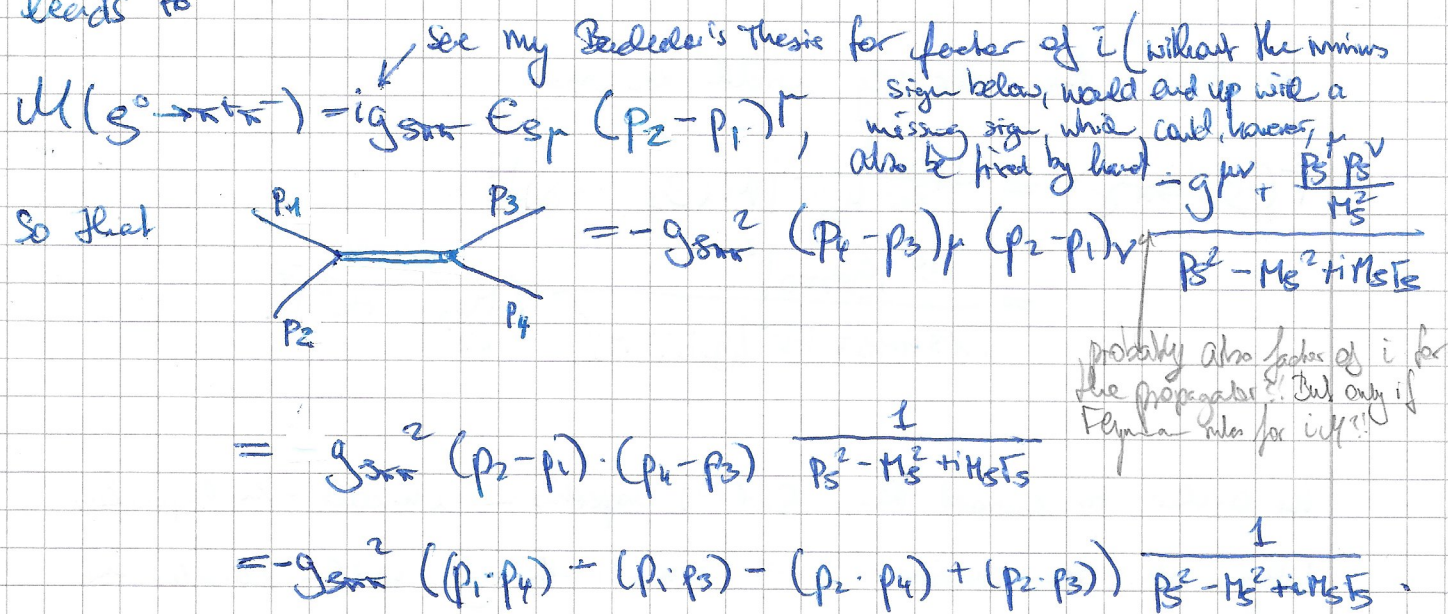 leads to
see my Bachelor's Thesis for factor of i (without the minus
sign below, would end up with a
M(ρ⁰→π⁺π⁻) = i g_ρππ ε_ρμ (p₂-p₁)^μ,
missing sign, which could, however,
also be fixed by hand)
So that
p₁ p₃
p₂ p₄
= -g_ρππ² (p₄-p₃)_μ (p₂-p₁)_ν (-g^μν + p_ρ^μ p_ρ^ν / M_ρ²) / (p_ρ² - M_ρ² + i M_ρ Γ_ρ)
probably also factor of i for
the propagator!! But only if
Feynman rules for iM!!
= g_ρππ² (p₂-p₁)·(p₄-p₃) 1 / (p_ρ² - M_ρ² + i M_ρ Γ_ρ)
= -g_ρππ² ((p₁·p₄) - (p₁·p₃) - (p₂·p₄) + (p₂·p₃)) 1 / (p_ρ² - M_ρ² + i M_ρ Γ_ρ).